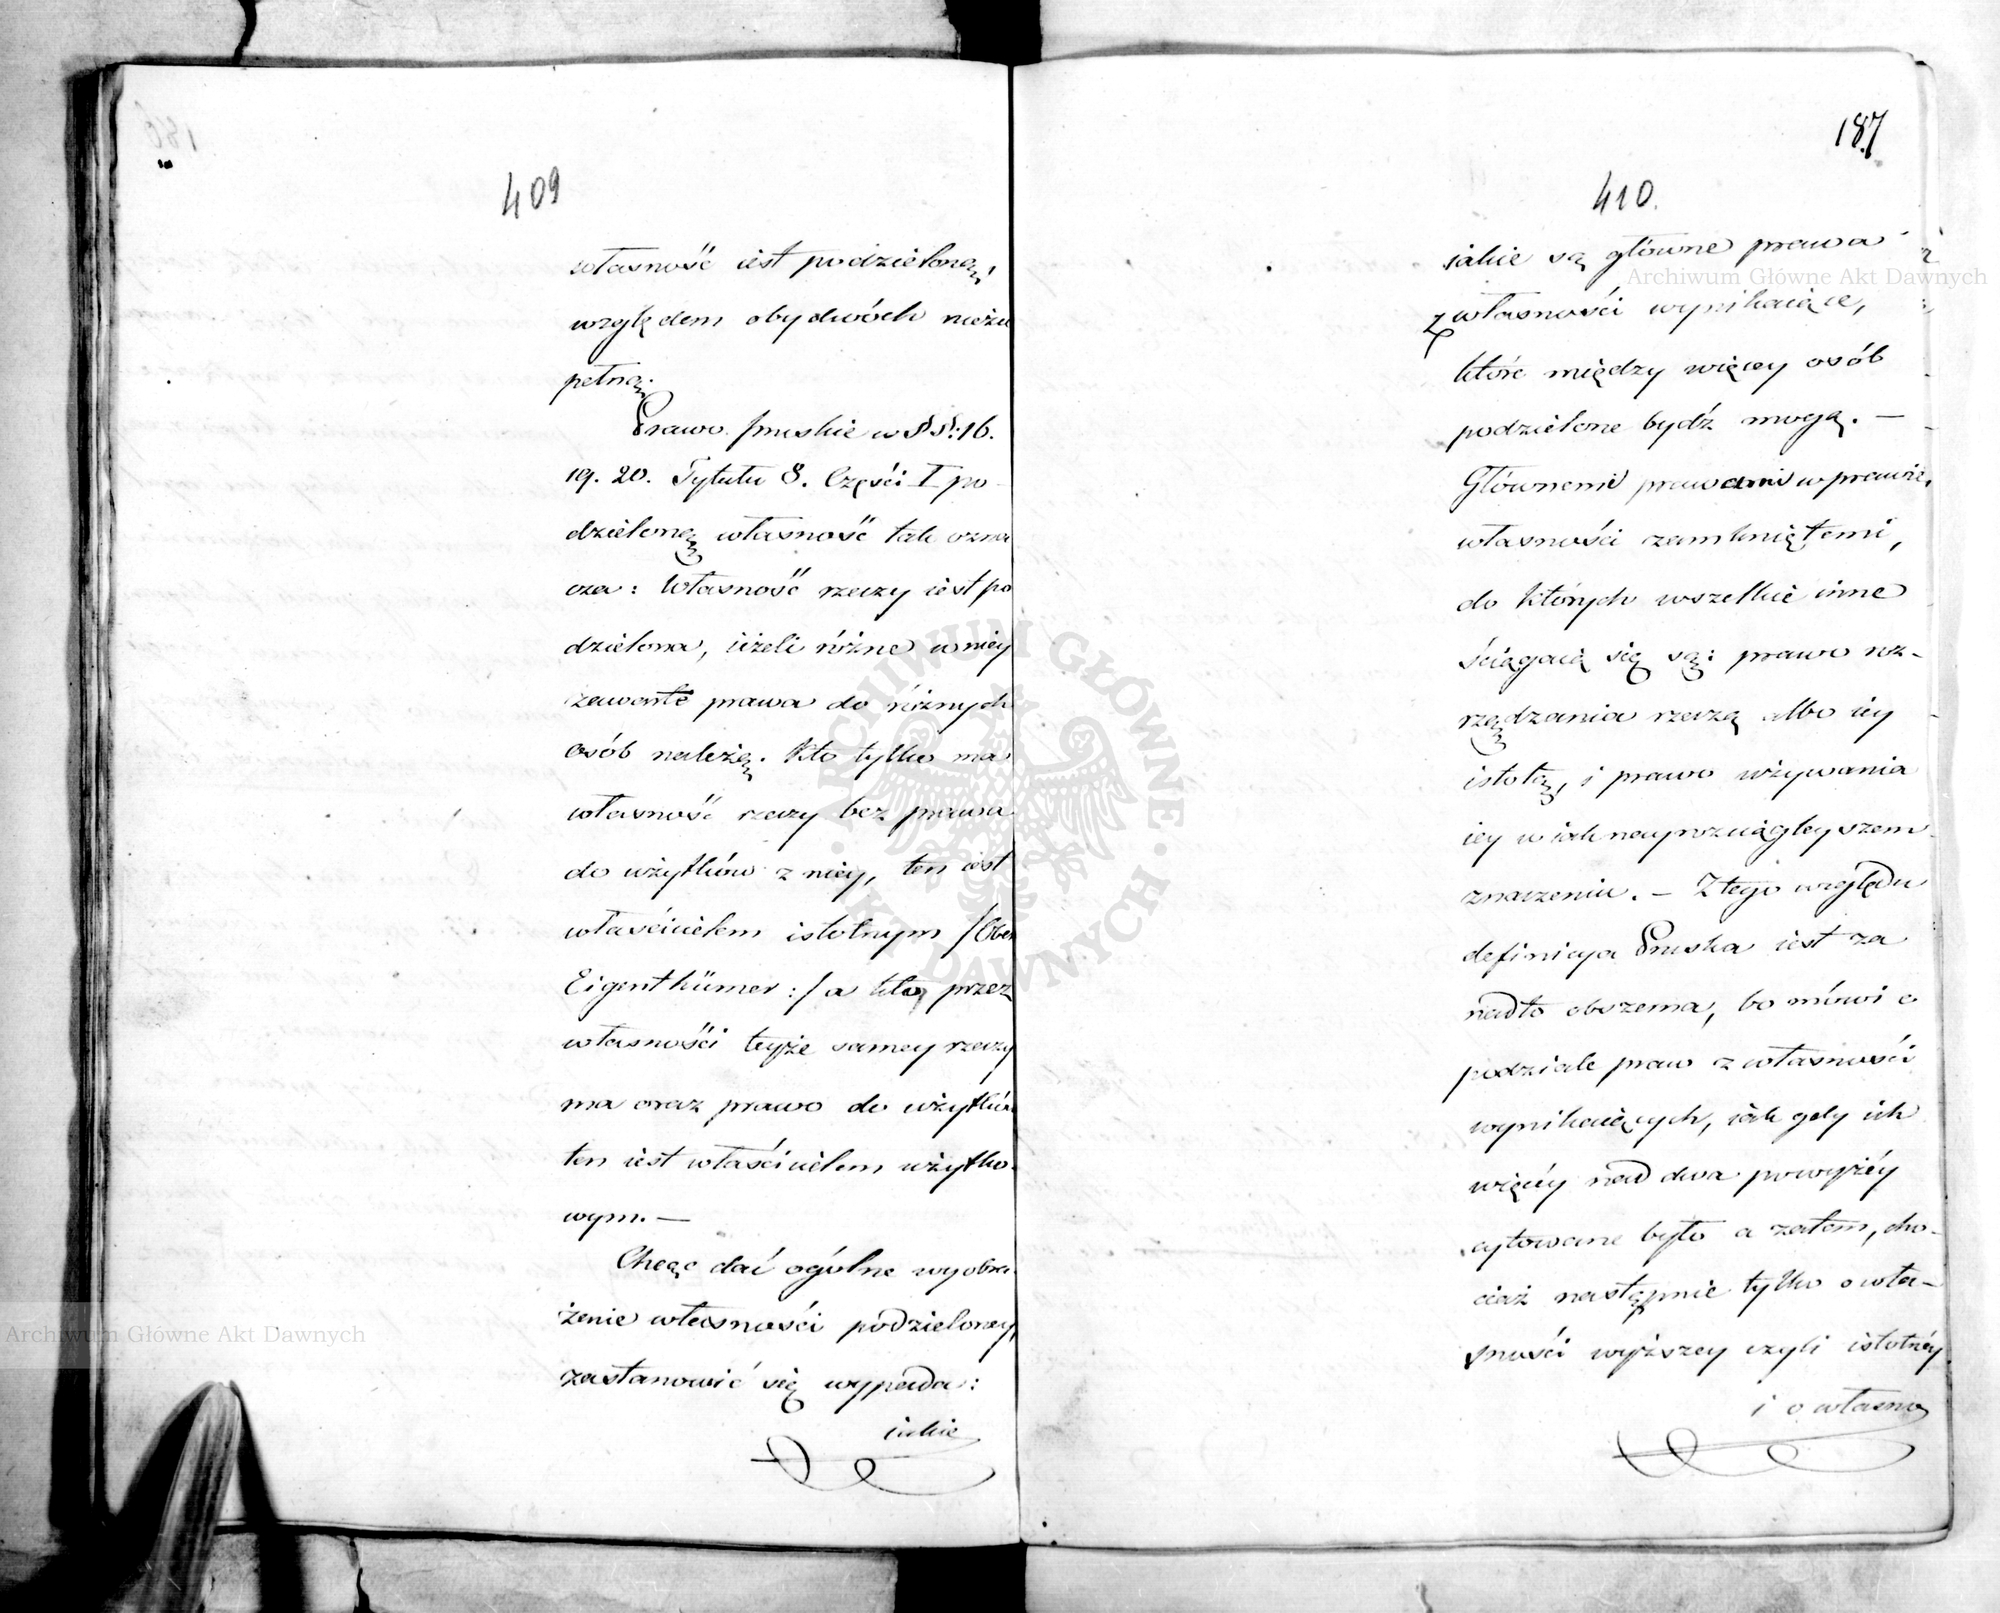 409
własność iest podzieloną,
względem obydwóch niezu
pełną.
Prawo pruskie w §§: 16.
19. 20. Tytułu 8. Części I po-
dzieloną własność tak ozna
cza: Własność rzeczy iest po
dzielona, ieżeli różne w niey
zawarte prawa do różnych
osób należą. Kto tylko ma
własność rzeczy bez prawa
do użytków z niey, ten iest
właścicielem istotnym /Ober
Eigenthümer:/ a kto przez
własności teyże samey rzeczy
ma oraz prawo do użytków
ten iest właścicielem użytko-
wym. —
Chcąc dać ogólne wyobra-
żenie własności podzieloney,
zastanowić się wypada:
iakie
187
410.
iakie są główne prawa
z własności wynikaiące,
które między więcey osób
podzielone bydź mogą. —
Głównemi prawami w prawie
własności zamkniętemi,
do których wszelkie inne
ściągaią się są: prawo roz-
rządzania rzeczą albo iey
istotą, i prawo używania
iey w iak nayrozciągleyszem
znaczeniu. — Z tego względu
definicya Pruska iest za
nadto obszerna, bo mówi o
podziale praw z własności
wynikaiących, iak gdy ich
więcéy nad dwa powyżéy
cytowane było a zatem, cho-
ciaż następnie tylko o wła-
sności wyższey czyli istotnéy
i o własno
Archiwum Główne Akt Dawnych
Archiwum Główne Akt Dawnych
ARCHIWUM GŁÓWNE · AKT DAWNYCH ·